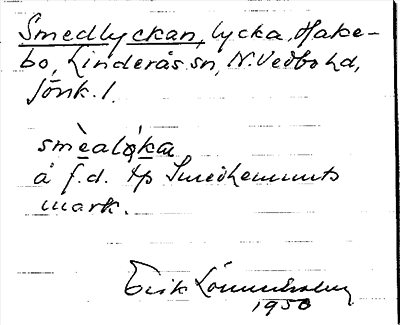 Smedlyckan, lycka, Hake-
bo, Linderås sn, N. Vedbo hd,
Jönk. l.
smèalǫka
å f.d. tp Smedhemmets
mark.
Erik Lönnerholm
1950